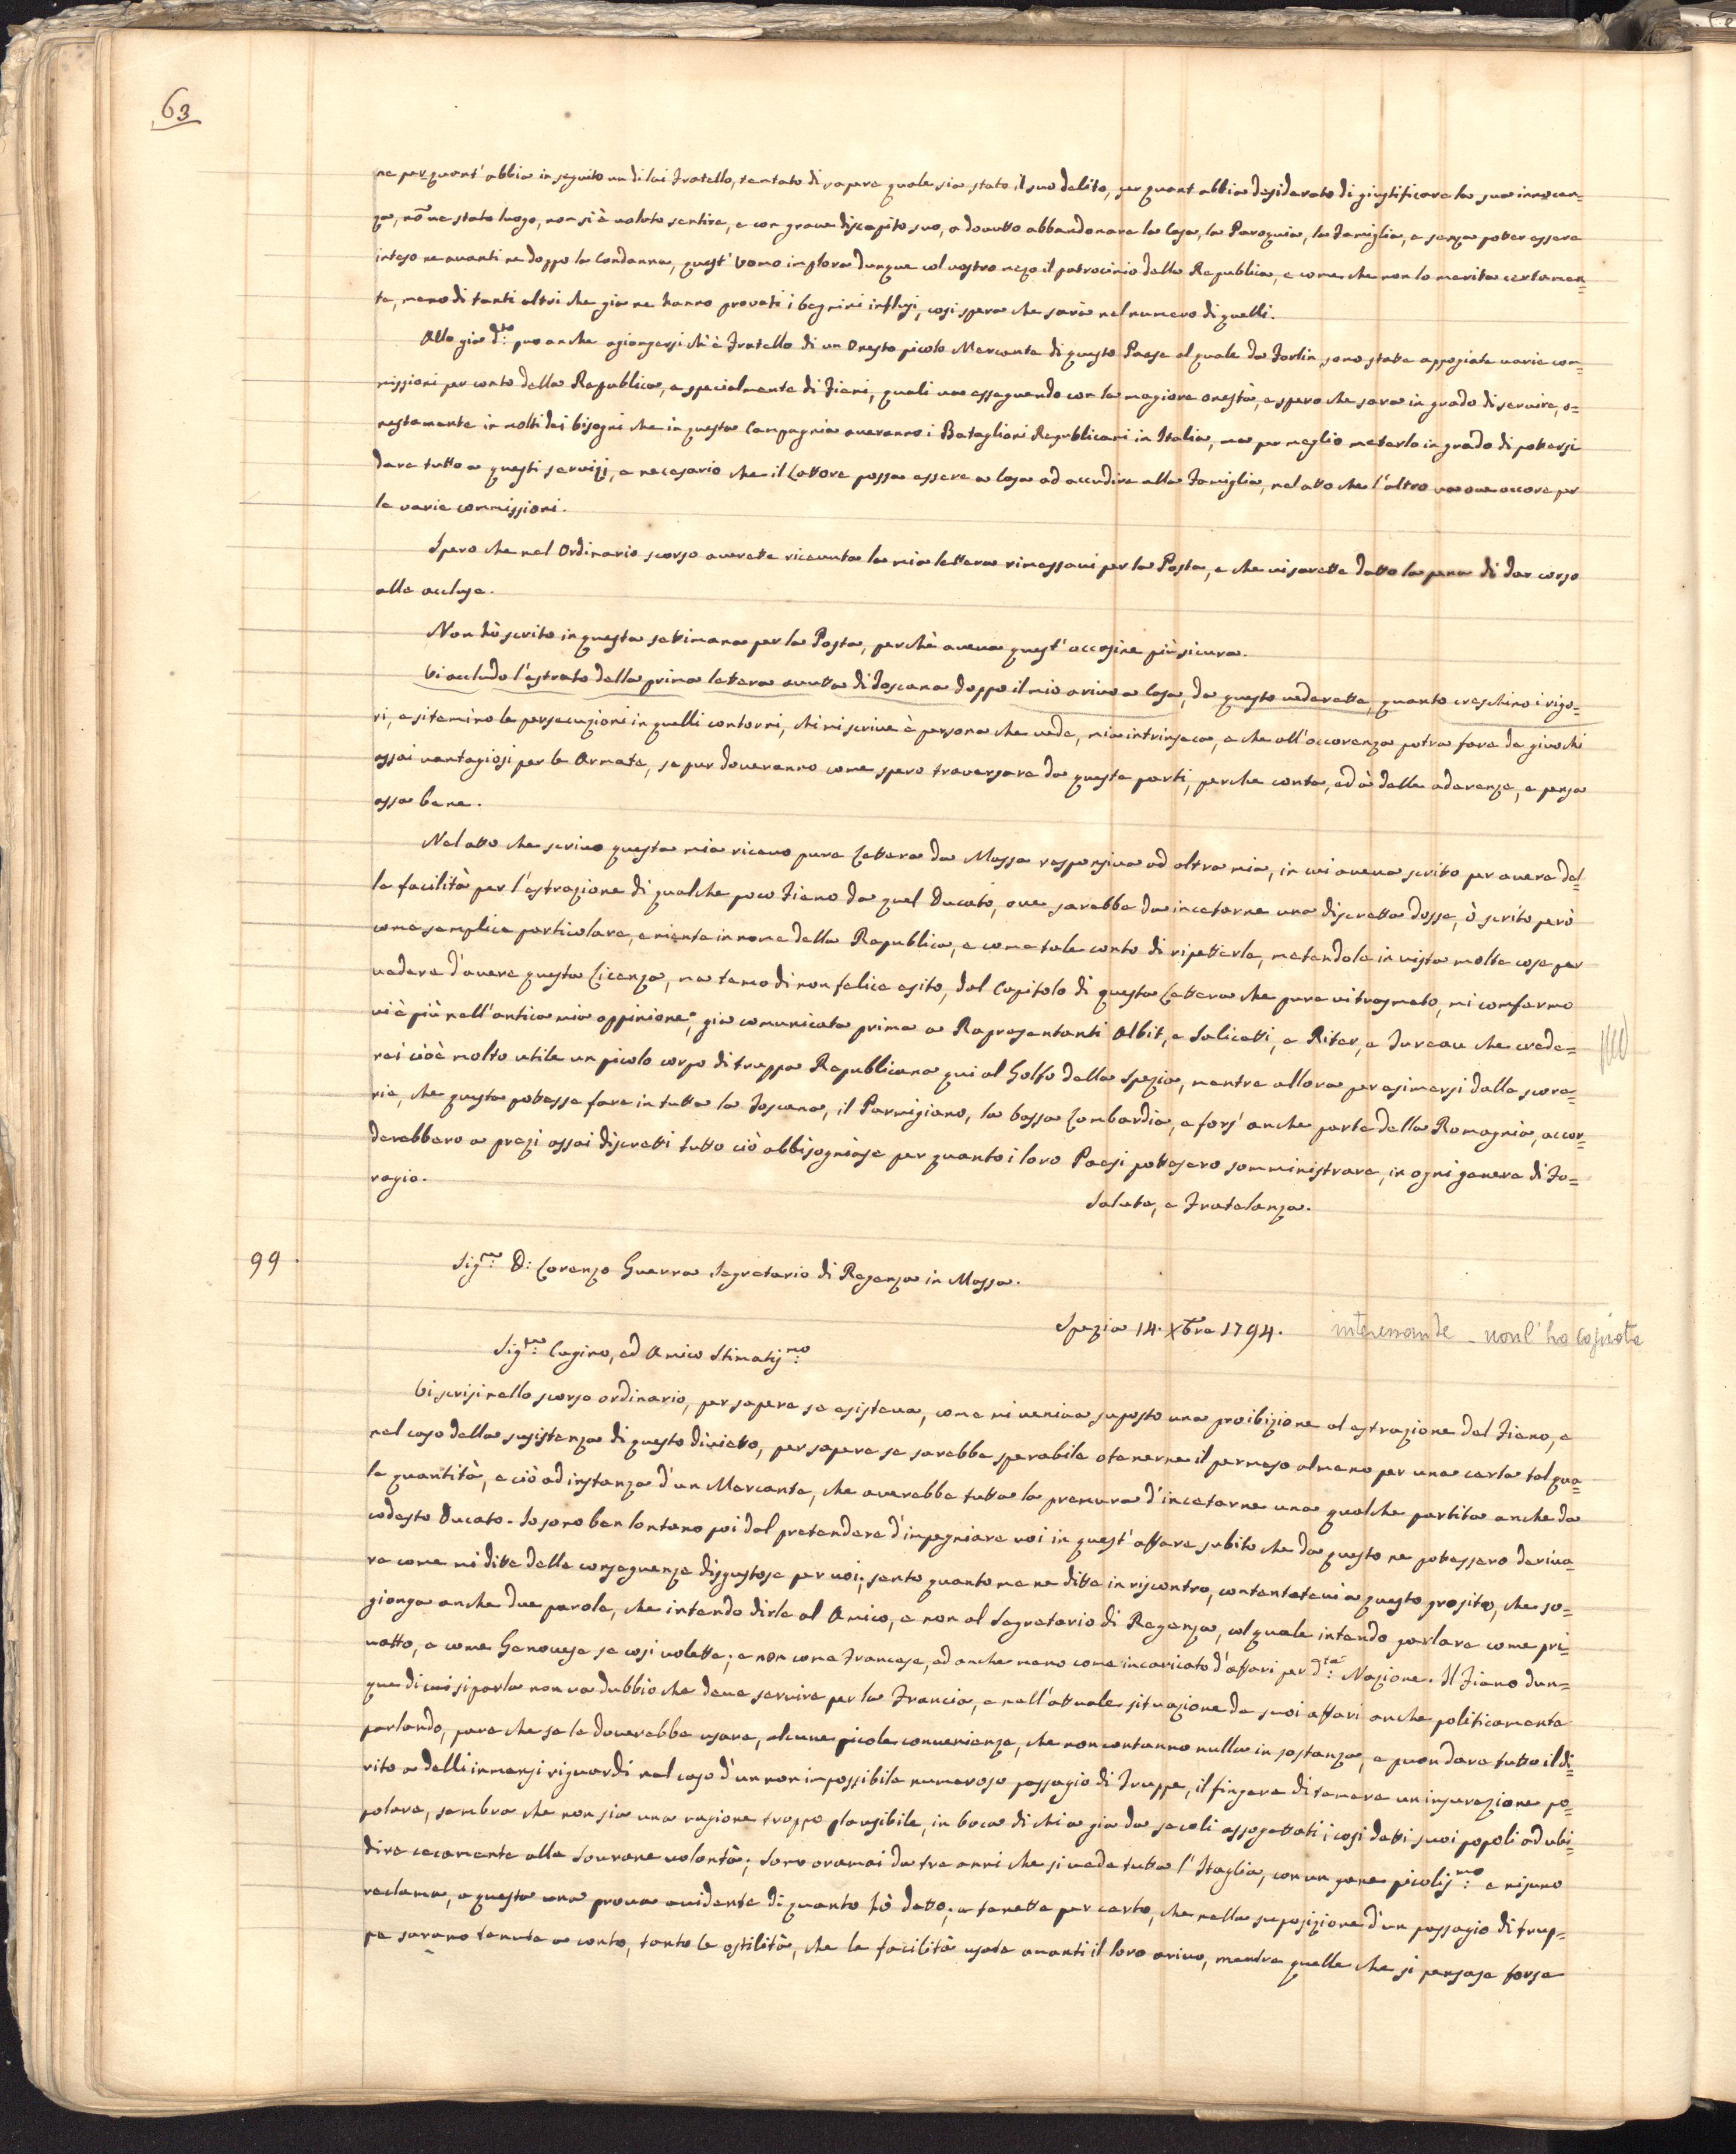 63
ne per quant' abbia in seguito un di lui Fratello, tentato di sapere quale sia stato il suo delito, per quant abbia desiderato di giustificare la sua innocen=
za, nō ne stato luogo, non si è voluto sentire, e con grave discapito suo, a dovutto abbandonare la Casa, la Paroquia, la Famiglia, e senza potter essere
inteso ne avanti ne doppo la Condanna, quest' Uomo implora dunque col vostro mezo il patrocinio della Republica, e come che non lo merita certamen=
te, meno di tanti altri che gia ne hanno provati i begnini influsi, cosi spera che sarà nel numero di quelli.
Alle gia d:to puo anche agiongersi ch'è Fratello di un Onesto picolo Mercante di questo Paese al quale da Forlin sono state appogiate varie com=
missioni per conto della Republica, e specialmente di Fieni, quali va esseguendo con la magiore onestà, e spero che sara in grado di servire, o=
nestamente in molti dei bisogni che in questa Campagnia averanno i Bataglioni Republicani in Italia, ma per meglio meterlo in grado di pottersi
dare tutto a questi servizj, e necesario che il Lattore possa essere a Casa ad accudire alla Famiglia, nel atto che l'altro va ove occore per
le varie commissioni.
Spero che nel Ordinario scorso averette ricevuta la mia lettera rimessavi per la Posta, e che vi sarette datto la pena di dar corso
alle accluse.
Non hò scrito in questa setimana per la Posta, perchè aveva quest' occasine più sicura.
Vi accludo l'estrato della prima lettera avutta di Toscana doppo il mio arivo a Casa, da questo vederette, quanto creschino i rigo=
ri, e si temino le persecuzioni in quelli contorni, chi mi scrive è persona che vede, mia intrinseca, e che all'occorenza potra fare de giuochi
assai vantagiosi per le Armate, se pur doveranno come spero traversare da queste parti, perche conta, ed à delle aderenze, e pensa
assa bene.
Nel atto che scrivo questa mia ricevo pure Lettera da Massa responsiva ad altra mia, in cui aveva scrito per avere del=
le facilità per l'estrazione di qualche poco Fieno da quel Ducato, ove sarebbe da incetarne una discretta dosse, ò scrito però
come semplice particolare, e niente in nome della Republica, e come tale conto di ripetterle, metendole in vista molte cose per
vedere d'avere questa Licenza, ma temo di non felice esito, dal Capitolo di questa Lettera che pure vi trasmeto, mi confermo
vi è più nell'antica mia oppinione, gia comunicata prima a Rapresentanti Albit, e Salicetti, e Riter, e Tureau che crede=
rei cioè molto utile un picolo corpo di truppa Republicana qui al Golfo della Spezia, mentre allora per esimersi dalle score=
rie, che questa potesse fare in tutta la Toscana, il Parmigiano, la bassa Lombardia, e fors' anche parte della Romagnia, accor=
derebbero a prezi assai discretti tutto ciò abbisogniase per quanto i loro Paesi pottesero somministrare, in ogni genere di Fo=
ragio.
Salute, e Fratelanza.
99.
Sig:re D: Lorenzo Guerra Segretario di Regenza in Massa.
Spezia 14. Xbre 1794.
interessante - non l'ho copiata
Sig:re Cugino, ed Amico Stimatis:mo
Vi scrisi nello scorso ordinario, per sapere se esisteva, come mi veniva suposto una proibizione al estrazione del Fieno, e
nel caso della susistenza di questo divietto, per sapere se sarebbe sperabile otenerne il permeso almeno per una certa tal qua=
le quantità, e ciò ad instanza d'un Mercante, che averebbe tutta la premura d'incetarne una qualche partita anche da
codesto Ducato. Io sono ben lontano poi dal pretendere d'impegniare voi in quest' affare subito che da questo ne potessero deriva=
re come mi ditte delle conseguenze disgustose per voi; sento quanto me ne ditte in riscontro, contentatevi a questo prosito, che so=
gionga anche due parole, che intendo dirle al Amico, e non al Segretario di Regenza, col quale intendo parlare come pri=
vatto, e come Genovese se cosi volette; e non come Francese, ed anche meno come incaricato d'affari per d:ta Nazione. Il Fieno dun=
que di cui si parla non va dubbio che deve servire per la Francia, e nell'attuale situazione de suoi affari anche politicamente
parlando, pare che se le doverebbe usare, alcune picole convenienze, che non contanno nulla in sostanza, e puon dare tutto il di=
rito a delli inmensi riguardi nel caso d'un non impossibile numeroso passagio di Truppe, il fingere di temere un insurezione po=
polare, sembra che non sia una ragione troppo plausibile, in boca di chi a gia da secoli assogettati i cosi detti suoi popoli ad ubi=
dire cecamente alla Sovrane volontà; Sono oramai da tre anni che si vede tutta l'Italia, con un pane picolis:mo e nisuno
reclama, e questa una prova evidente di quanto hò detto; e tenette per certo, che nella suposizione d'un passagio di trup=
pe sarano tenute a conto, tanto le ostilità, che le facilità usate avanti il loro arivo, mentre quelle che si pensase forse